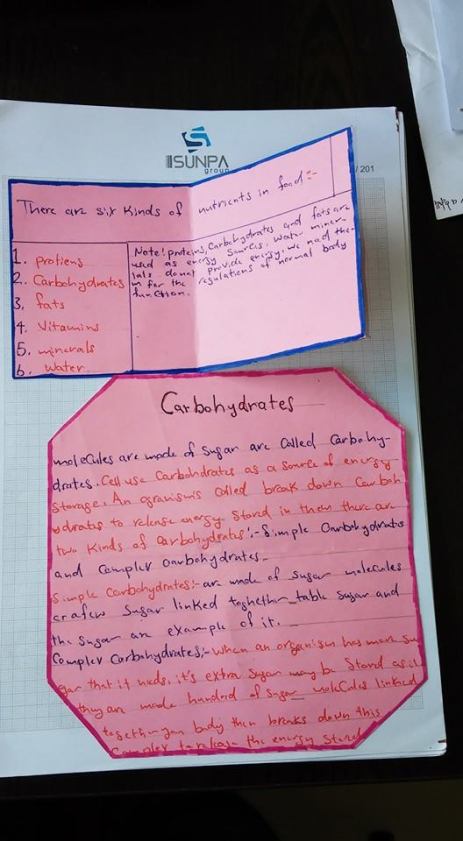 SUNPA
group
/ 201
There are six kinds of nutrients in food:-
1. protiens
2. Carbohydrates
3. fats
4. Vitamins
5. minerals
6. water
Note! proteins, Carbohydrates and fats are
used as energy Sources. Water miner-
als donot provide energy. we need the-
m for the regulations of normal body
function.
Carbohydrates
molecules are made of Sugar are Called Carbohy-
drates. Cell use Carbohdrates as a source of energy
Storage. An organisms Called break down Carboh
ydrates to release energy Stored in them there are
two Kinds of Carbohydrates:- Simple Carbohydrates
and Complex carbohydrates.
Simple Carbohydrates:- are made of Sugar molecules
or a few Sugar linked together table Sugar and
the Sugar are example of it.
Complex Carbohydrates:- when an organism has more Su
gar that it needs, it's extra Sugar may be Stored as
they are made hundred of Sugar molecules linked
together body then breaks down this
Complex to release the energy Stored